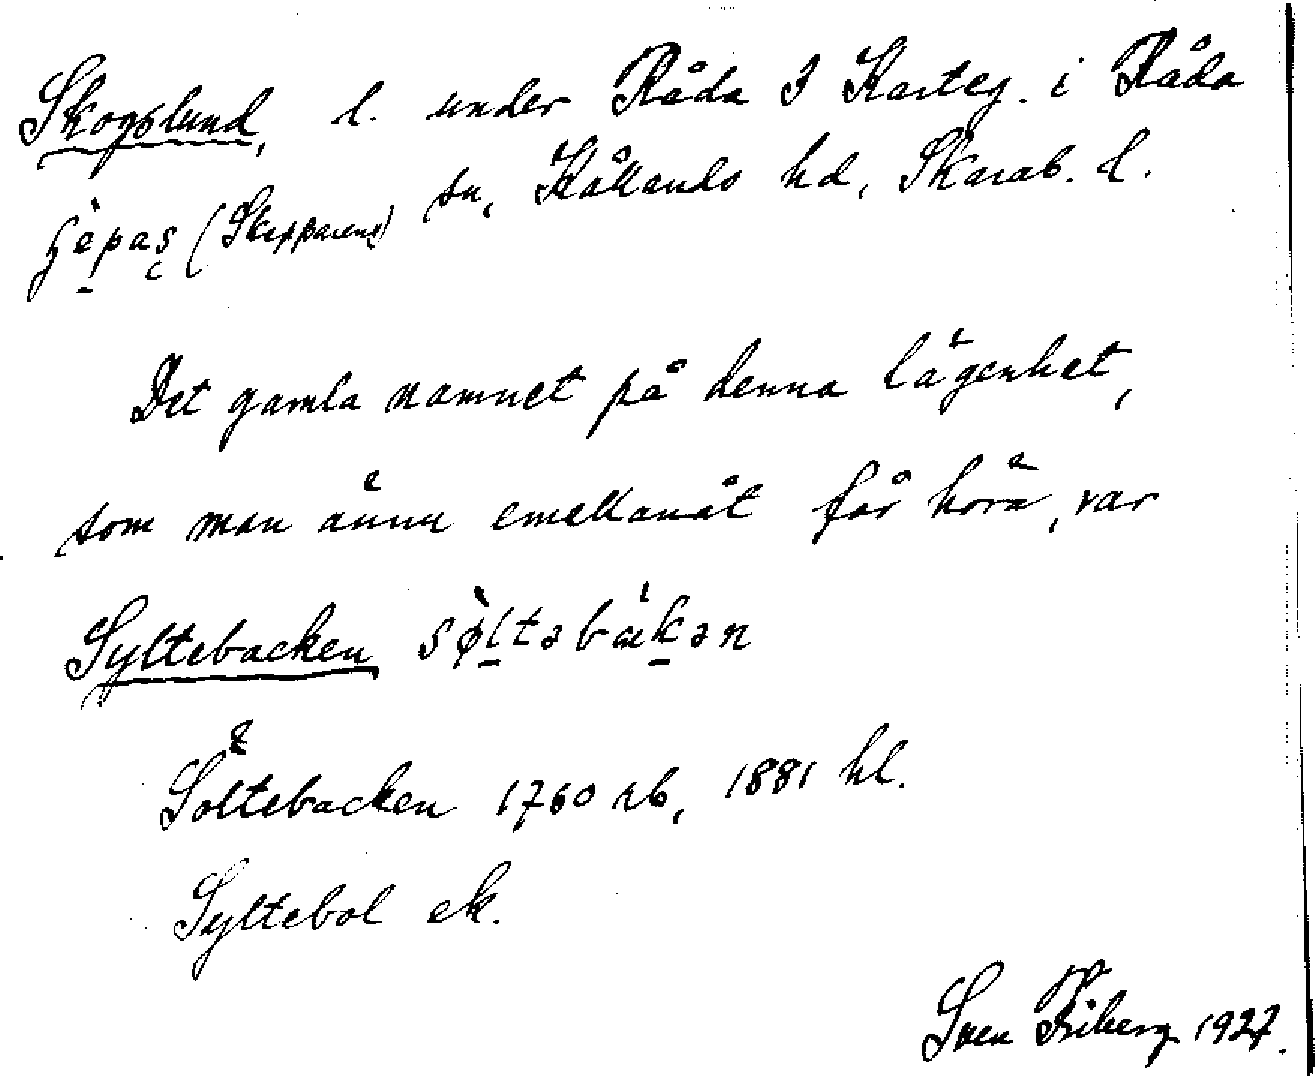 Skogslund, l. under Råda 3 Karteg. i Råda
sn, Kållands hd, Skarab. l.
(Skepparens)
Det gamla namnet på denna lägenhet,
som man ännu emellanåt får höra, var
Syltebacken sø̀ltəbákən
Söltebacken 1760 rb, 1881 hl.
Syltebol ek.
Sven Friberg 1927.